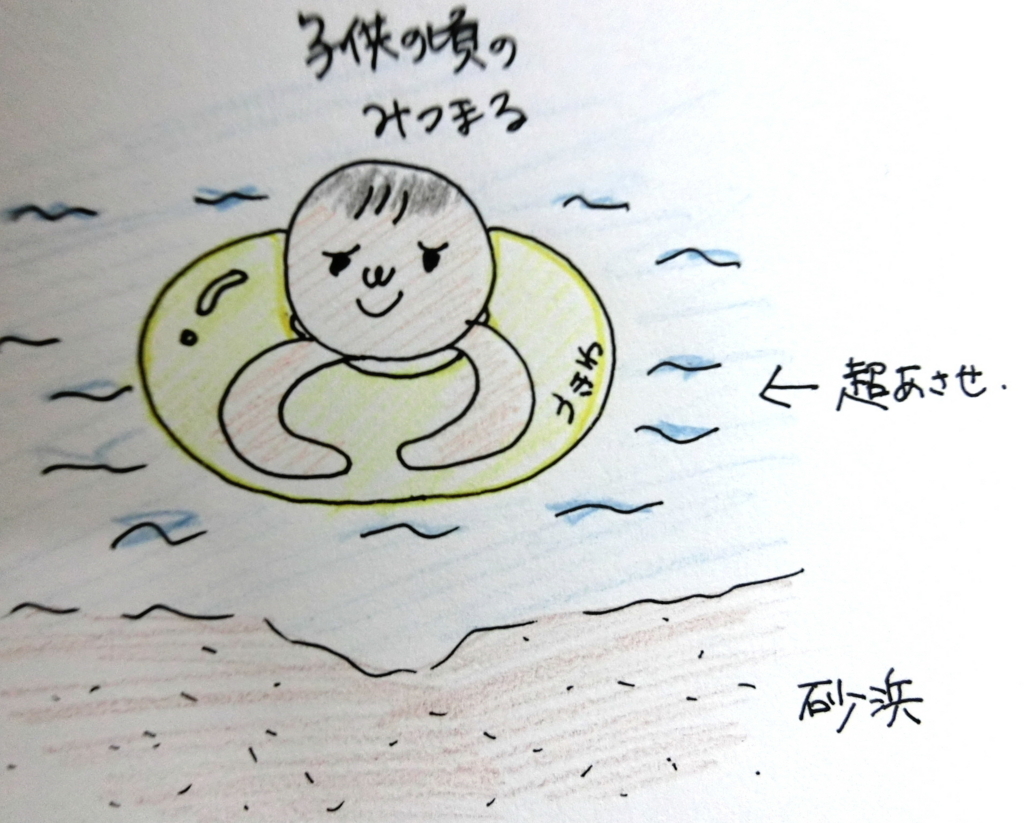 子供の頃の
みつまる
うきわ
← 超あさせ.
砂浜